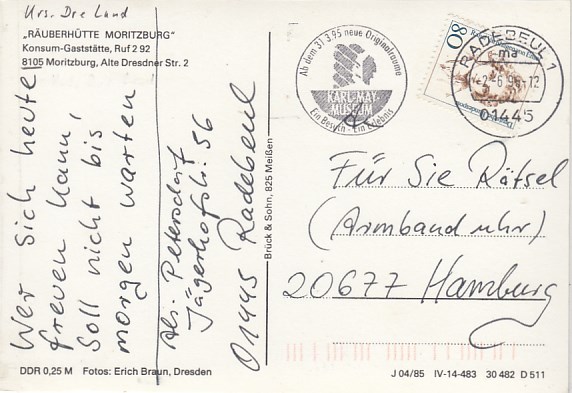 „RÄUBERHÜTTE MORITZBURG"
Konsum-Gaststätte, Ruf 2 92
8105 Moritzburg, Alte Dresdner Str. 2
Wer sich heute
freuen kann,
soll nicht bis
morgen warten
Abs. Petersdorf
Jägerhofstr. 56
01445 Radebeul
Brück & Sohn, 825 Meißen
Ab dem 31.3.95 neue Originalräume
KARL-MAY
MUSEUM
Ein Besuch - Ein Erlebnis
80
RADEBEUL 1
ma
01445
Für Sie Rätsel
(Armband uhr)
20677 Hamburg
DDR 0,25 M Fotos: Erich Braun, Dresden
J 04/85 IV-14-483 30 482 D 511